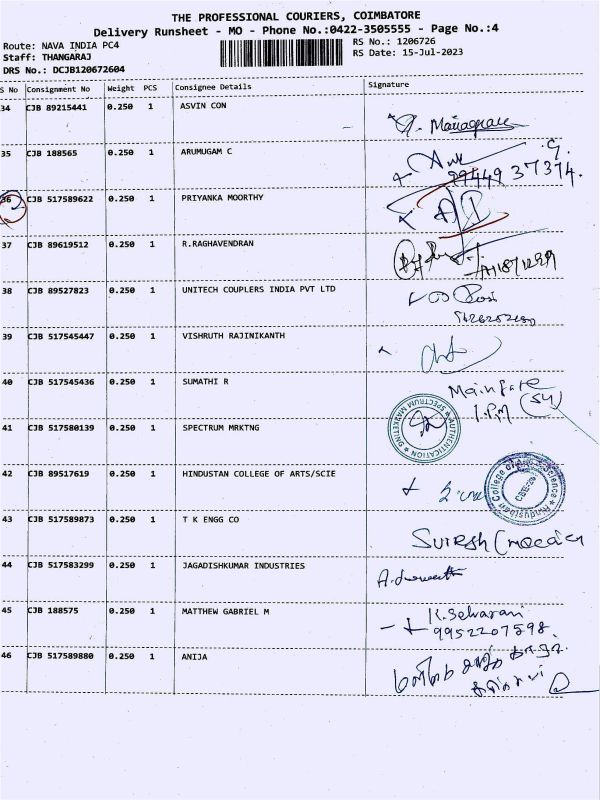 THE PROFESSIONAL COURIERS, COIMBATORE
Delivery Runsheet - MO - Phone No.:0422-3505555 - Page No.:4
Route: NAVA INDIA PC4
RS No.: 1206726
Staff: THANGARAJ
RS Date: 15-Jul-2023
DRS No.: DCJB120672604
S No Consignment No Weight PCS Consignee Details Signature
34 CJB 89215441 0.250 1 ASVIN CON
35 CJB 188565 0.250 1 ARUMUGAM C
99449 37374.
36 CJB 517589622 0.250 1 PRIYANKA MOORTHY
37 CJB 89619512 0.250 1 R.RAGHAVENDRAN
38 CJB 89527823 0.250 1 UNITECH COUPLERS INDIA PVT LTD
39 CJB 517545447 0.250 1 VISHRUTH RAJINIKANTH
40 CJB 517545436 0.250 1 SUMATHI R
41 CJB 517580139 0.250 1 SPECTRUM MRKTNG
AUTHENTICATION ★ SPECTRUM MARKETING ★
42 CJB 89517619 0.250 1 HINDUSTAN COLLEGE OF ARTS/SCIE
43 CJB 517589873 0.250 1 T K ENGG CO
SURESH
44 CJB 517583299 0.250 1 JAGADISHKUMAR INDUSTRIES
45 CJB 188575 0.250 1 MATTHEW GABRIEL M
K.Selvarani
9952207598.
46 CJB 517589880 0.250 1 ANIJA